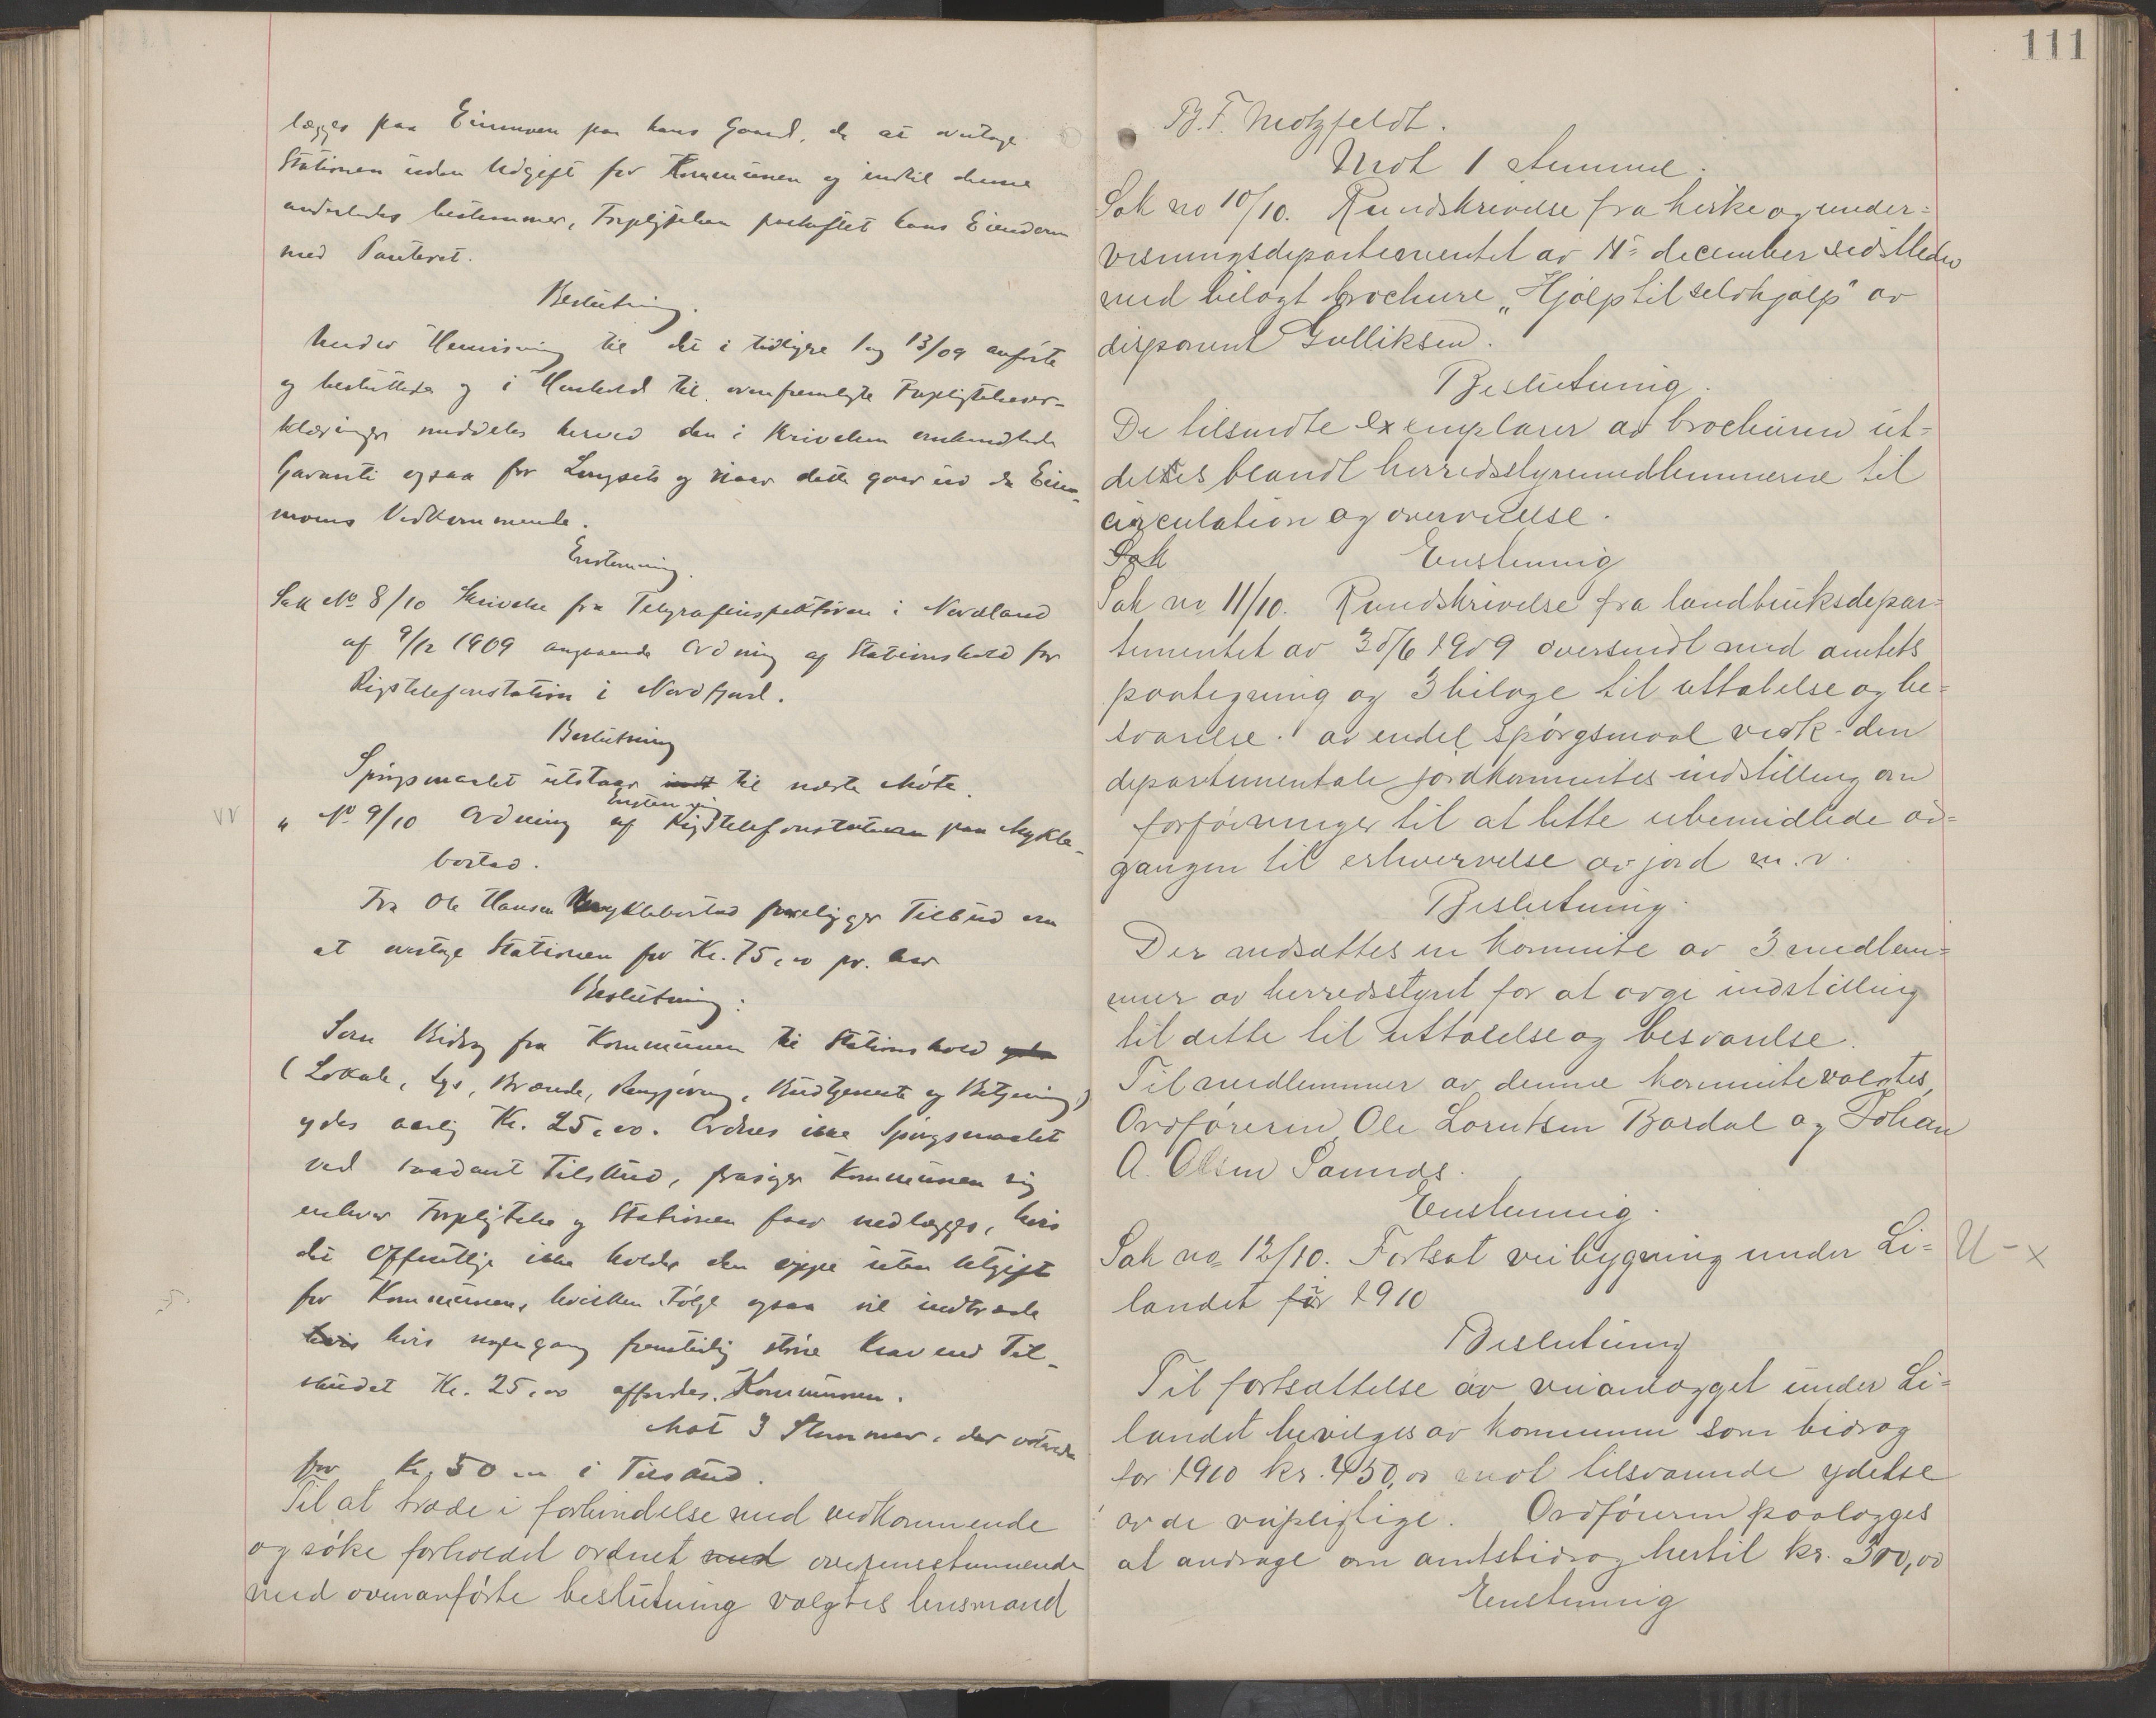 lægges paa Einmoen paa hans Gaard, da at overtage
Stationen uden Udgift for Kommunen og indtil denne
anderledes bestemmer, Forpligtelsen paahæftet hans Eiendom
med Panteret.
Beslutning.
Under Henvisning til det i tidligere Sag 13/09 anførte
og besluttede og i Henhold til ovenfremlagte Forpligtelseser-
klæringer meddeles herved den i Skrivelsen omhandlede
Garanti ogsaa for Lengsets og naar dette gaar ud da Ein-
moens Vedkommende.
Enstemmig.
Sak No 8/10 Skrivelse fra Telegrafinspektøren i Nordland
af 9/12 1909 angaaende Ordning af Stationshold for
Rigstelefonstation i Nordfjord.
Beslutning
Spørgsmaalet utstaar til næste Møte.
Enstemmig
" No 9/10 Ordning af Rigstelefonstationen paa Mykle-
bostad.
Fra Ole Hansen Myklebostad foreligger Tilbud om
at overtage Stationen for Kr. 75,00 pr. Aar
Beslutning:
Som Bidrag fra Kommunen til Stationshold
(Lokale, Lys, Brænde, Rengjøring, Budtjeneste og Betjening)
ydes aarlig Kr. 25,00. Ordnes ikke Spørgsmaalet
ved saadant Tilskud, frasiger Kommunen sig
enhver Forpligtelse og Stationen faar nedlægges, hvis
det Offentlige ikke holder den oppe uten Utgift
for Kommunen, hvilken Følge ogsaa vil indtræde
hvis hvis nogengang fremtidig større Krav end Til-
skudet Kr. 25,00 affordres Kommunen.
Mot 3 Stemmer, der voterede
for Kr. 50,00 i Tilskud.
Til at træde i forbindelse med vedkommende
og søke forholdet ordnet med overensstemmende
med ovenanførte beslutning valgtes lensmand
111
B. F. Motzfeldt.
Mot 1 stemme.
Sak no 10/10. Rundskrivelse fra kirke og under-
visningsdepartementet av december sidstleden
med bilagt brochure "Hjælp til selvhjælp" av
disponent Gulliksen.
Beslutning.
De tilsendte exemplarer av brochuren ut-
deltes blandt herredsstyremedlemmerne til
circulation og overveielse.
Sak Enstemmig
Sak no 11/10. Rundskrivelse fra landbruksdepar-
tementet av 30/6 1909 oversendt med amtets
paategning og 3 bilage til uttalelse og be-
svarelse av endel spørgsmaal vedk. den
departementale jordkommites indstilling om
forføininger til at lette ubemidlede ad-
gangen til erhvervelse av jord m. v.
Beslutning.
Der nedsættes en komite av 3 medlem-
mer av herredsstyret for at avgi indstilling
til dette til uttalelse og besvarelse.
Til medlemmer av denne komite valgtes
Ordføreren, Ole Lorntsen Bardal og Johan
A. Olsen Saunds.
Enstemmig.
Sak no 12/10. Fortsat veibygning under Li-
landet for 1910
U - x
Beslutning
Til fortsættelse av veianlægget under Li-
landet bevilges av kommunen som bidrag
for 1910 kr. 450,00 mot tilsvarende ydelse
av de veipligtige. Ordføreren paalægges
at andrage om amtsbidrag hertil kr. 300,00
Enstemmig